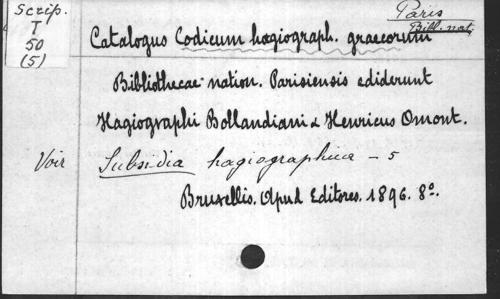 Scrip.
T
50
(5)
Paris
Bibl. nat.
Catalogus Codicum hagiograph. graecorum
Bibliothecae nation. Parisiensis ediderunt
Hagiographi Bollandiani & Henricus Omont.
Voir Subsidia hagiographica - 5
Bruxellis. Apud Editores. 1896. 8°.